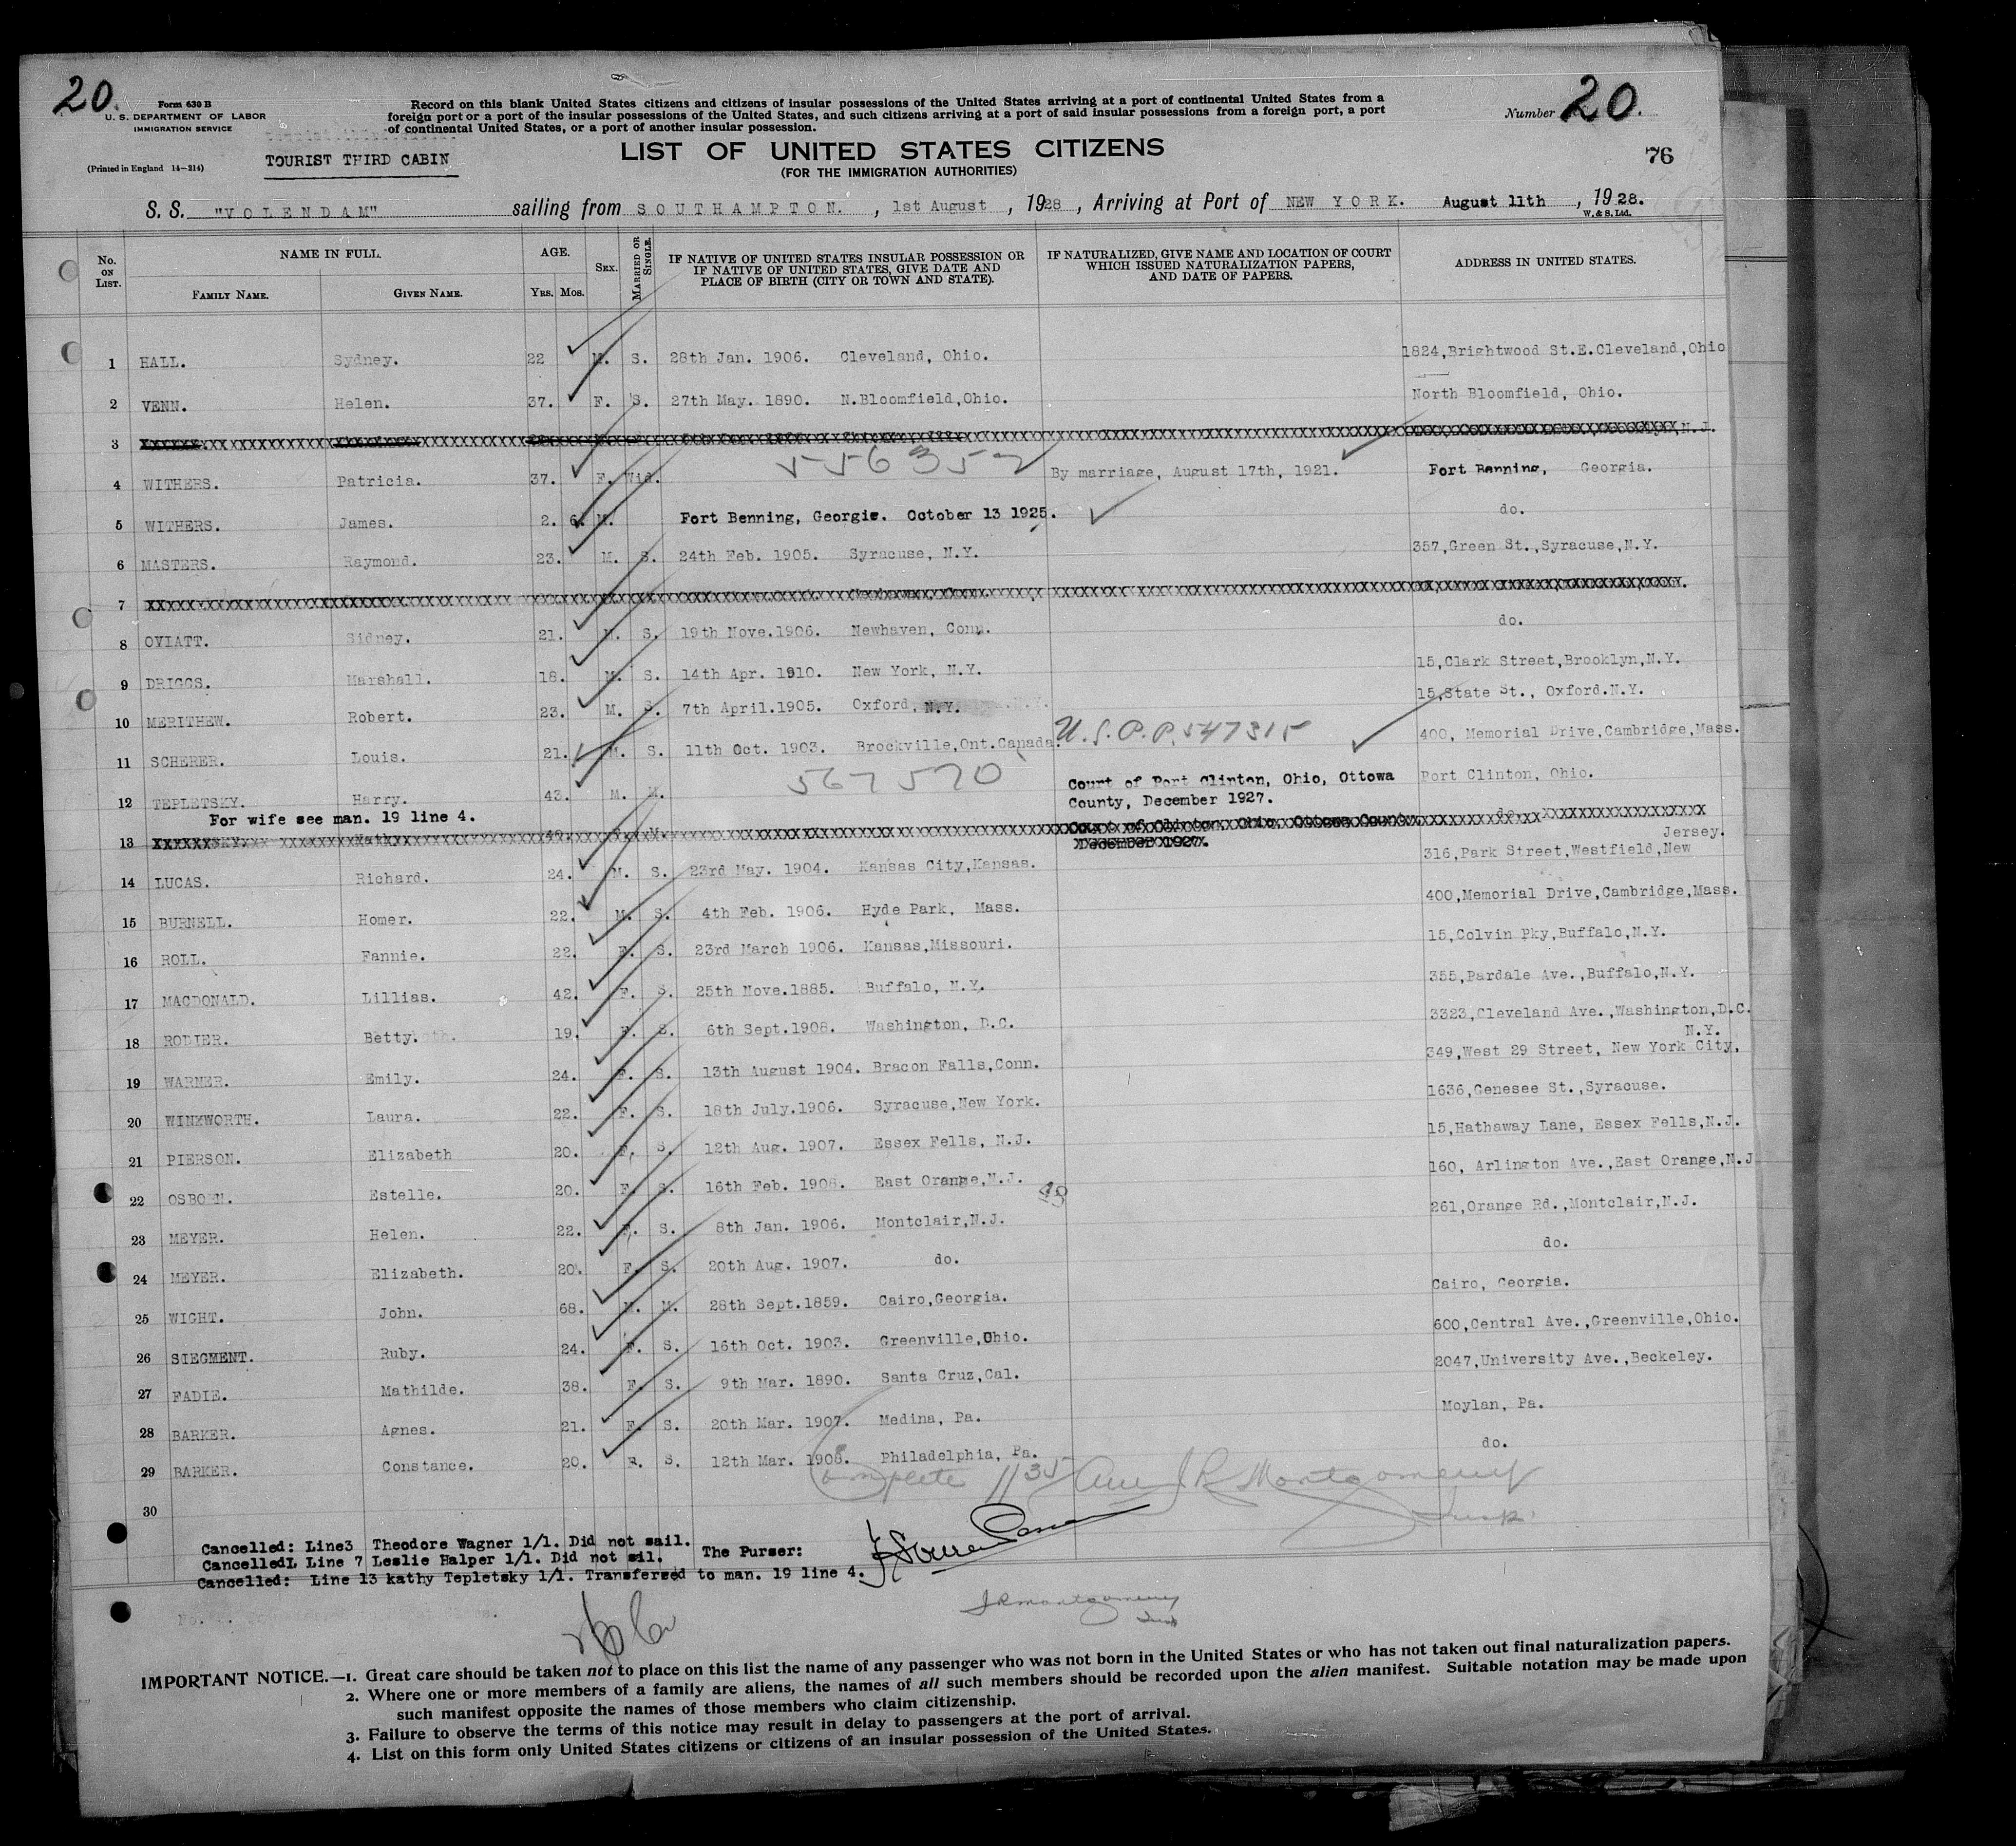 20.
Form 630 B
U. S. DEPARTMENT OF LABOR
IMMIGRATION SERVICE
(Printed in England 14—214)
TOURIST THIRD CABIN
Record on this blank United States citizens and citizens of insular possessions of the United States arriving at a port of continental United States from a
foreign port or a port of the insular possessions of the United States, and such citizens arriving at a port of said insular possessions from a foreign port, a port
of continental United States, or a port of another insular possession.
Number 20.
LIST OF UNITED STATES CITIZENS
(FOR THE IMMIGRATION AUTHORITIES)
76
S. S. "VOLENDAM" sailing from SOUTHAMPTON. , 1st August , 1928 , Arriving at Port of NEW YORK. August 11th , 1928.
W. & S. Ltd.
No. ON LIST. NAME IN FULL. FAMILY NAME. GIVEN NAME. AGE. YRS. MOS. SEX. MARRIED OR SINGLE. IF NATIVE OF UNITED STATES INSULAR POSSESSION OR IF NATIVE OF UNITED STATES, GIVE DATE AND PLACE OF BIRTH (CITY OR TOWN AND STATE). IF NATURALIZED, GIVE NAME AND LOCATION OF COURT WHICH ISSUED NATURALIZATION PAPERS, AND DATE OF PAPERS. ADDRESS IN UNITED STATES.
1 HALL. Sydney. 22 M. S. 28th Jan. 1906. Cleveland, Ohio. 1824,Brightwood St.E.Cleveland,Ohio
2 VENN. Helen. 37. F. S. 27th May. 1890. N.Bloomfield,Ohio. North Bloomfield, Ohio.
3 N.J.
556352
4 WITHERS. Patricia. 37. F. Wid. By marriage, August 17th, 1921. Fort Benning, Georgia.
5 WITHERS. James. 2. 6. M. Fort Benning, Georgie. October 13 1925. do.
6 MASTERS. Raymond. 23. M. S. 24th Feb. 1905. Syracuse, N.Y. 357,Green St.,Syracuse,N.Y.
7
8 OVIATT. Sidney. 21. M. S. 19th Nove.1906. Newhaven, Conn. do.
9 DRIGGS. Marshall. 18. M. S. 14th Apr. 1910. New York, N.Y. 15,Clark Street,Brooklyn,N.Y.
10 MERITHEW. Robert. 23. M. S. 7th April.1905. Oxford, N.Y. 15,State St., Oxford.N.Y.
11 SCHERER. Louis. 21. M. S. 11th Oct. 1903. Brockville,Ont.Canada. U.S.P.P.547315 400, Memorial Drive,Cambridge,Mass.
567570
12 TEPLETSKY. Harry. 43. M. M. Court of Port Clinton, Ohio, Ottowa County, December 1927. Port Clinton, Ohio.
For wife see man. 19 line 4.
13
14 LUCAS. Richard. 24. M. S. 23rd May. 1904. Kansas City,Kansas. 316,Park Street,Westfield,New Jersey.
15 BURNELL. Homer. 22. M. S. 4th Feb. 1906. Hyde Park, Mass. 400,Memorial Drive,Cambridge,Mass.
16 ROLL. Fannie. 22. F. S. 23rd March 1906. Kansas,Missouri. 15,Colvin Pky,Buffalo,N.Y.
17 MACDONALD. Lillias. 42. F. S. 25th Nove.1885. Buffalo, N.Y. 355,Pardale Ave.,Buffalo,N.Y.
18 RODIER. Betty. 19. F. S. 6th Sept.1908. Washington, D.C. 3323,Cleveland Ave.,Washington,D.C.
19 WARNER. Emily. 24. F. S. 13th August 1904. Bracon Falls,Conn. 349,West 29 Street, New York City, N.Y.
20 WINKWORTH. Laura. 22. F. S. 18th July.1906. Syracuse,New York. 1636,Genesee St.,Syracuse.
21 PIERSON. Elizabeth 20. F. S. 12th Aug. 1907. Essex Fells, N.J. 15,Hathaway Lane, Essex Fells,N.J.
22 OSBORN. Estelle. 20. F. S. 16th Feb. 1908. East Orange,N.J. 160, Arlington Ave.,East Orange,N.J
23 MEYER. Helen. 22. F. S. 8th Jan. 1906. Montclair,N.J. 261,Orange Rd.,Montclair,N.J.
24 MEYER. Elizabeth. 20. F. S. 20th Aug. 1907. do. do.
25 WIGHT. John. 68. M. M. 28th Sept.1859. Cairo,Georgia. Cairo, Georgia.
26 SIEGMENT. Ruby. 24. F. S. 16th Oct. 1903. Greenville,Ohio. 600,Central Ave.,Greenville,Ohio.
27 FADIE. Mathilde. 38. F. S. 9th Mar. 1890. Santa Cruz,Cal. 2047,University Ave.,Beckeley.
28 BARKER. Agnes. 21. F. S. 20th Mar. 1907. Medina, Pa. Moylan, Pa.
29 BARKER. Constance. 20. F. S. 12th Mar. 1908. Philadelphia, Pa. do.
Complete 1135 am J R Montgomery
30 Insp.
Cancelled: Line3 Theodore Wagner 1/1. Did not sail.
CancelledL Line 7 Leslie Halper 1/1. Did not sil. The Purser:
Cancelled: Line 13 kathy Tepletsky 1/1. Transfersed to man. 19 line 4.
J R Montgomery
Insp
IMPORTANT NOTICE.—1. Great care should be taken not to place on this list the name of any passenger who was not born in the United States or who has not taken out final naturalization papers.
2. Where one or more members of a family are aliens, the names of all such members should be recorded upon the alien manifest. Suitable notation may be made upon
such manifest opposite the names of those members who claim citizenship.
3. Failure to observe the terms of this notice may result in delay to passengers at the port of arrival.
4. List on this form only United States citizens or citizens of an insular possession of the United States.